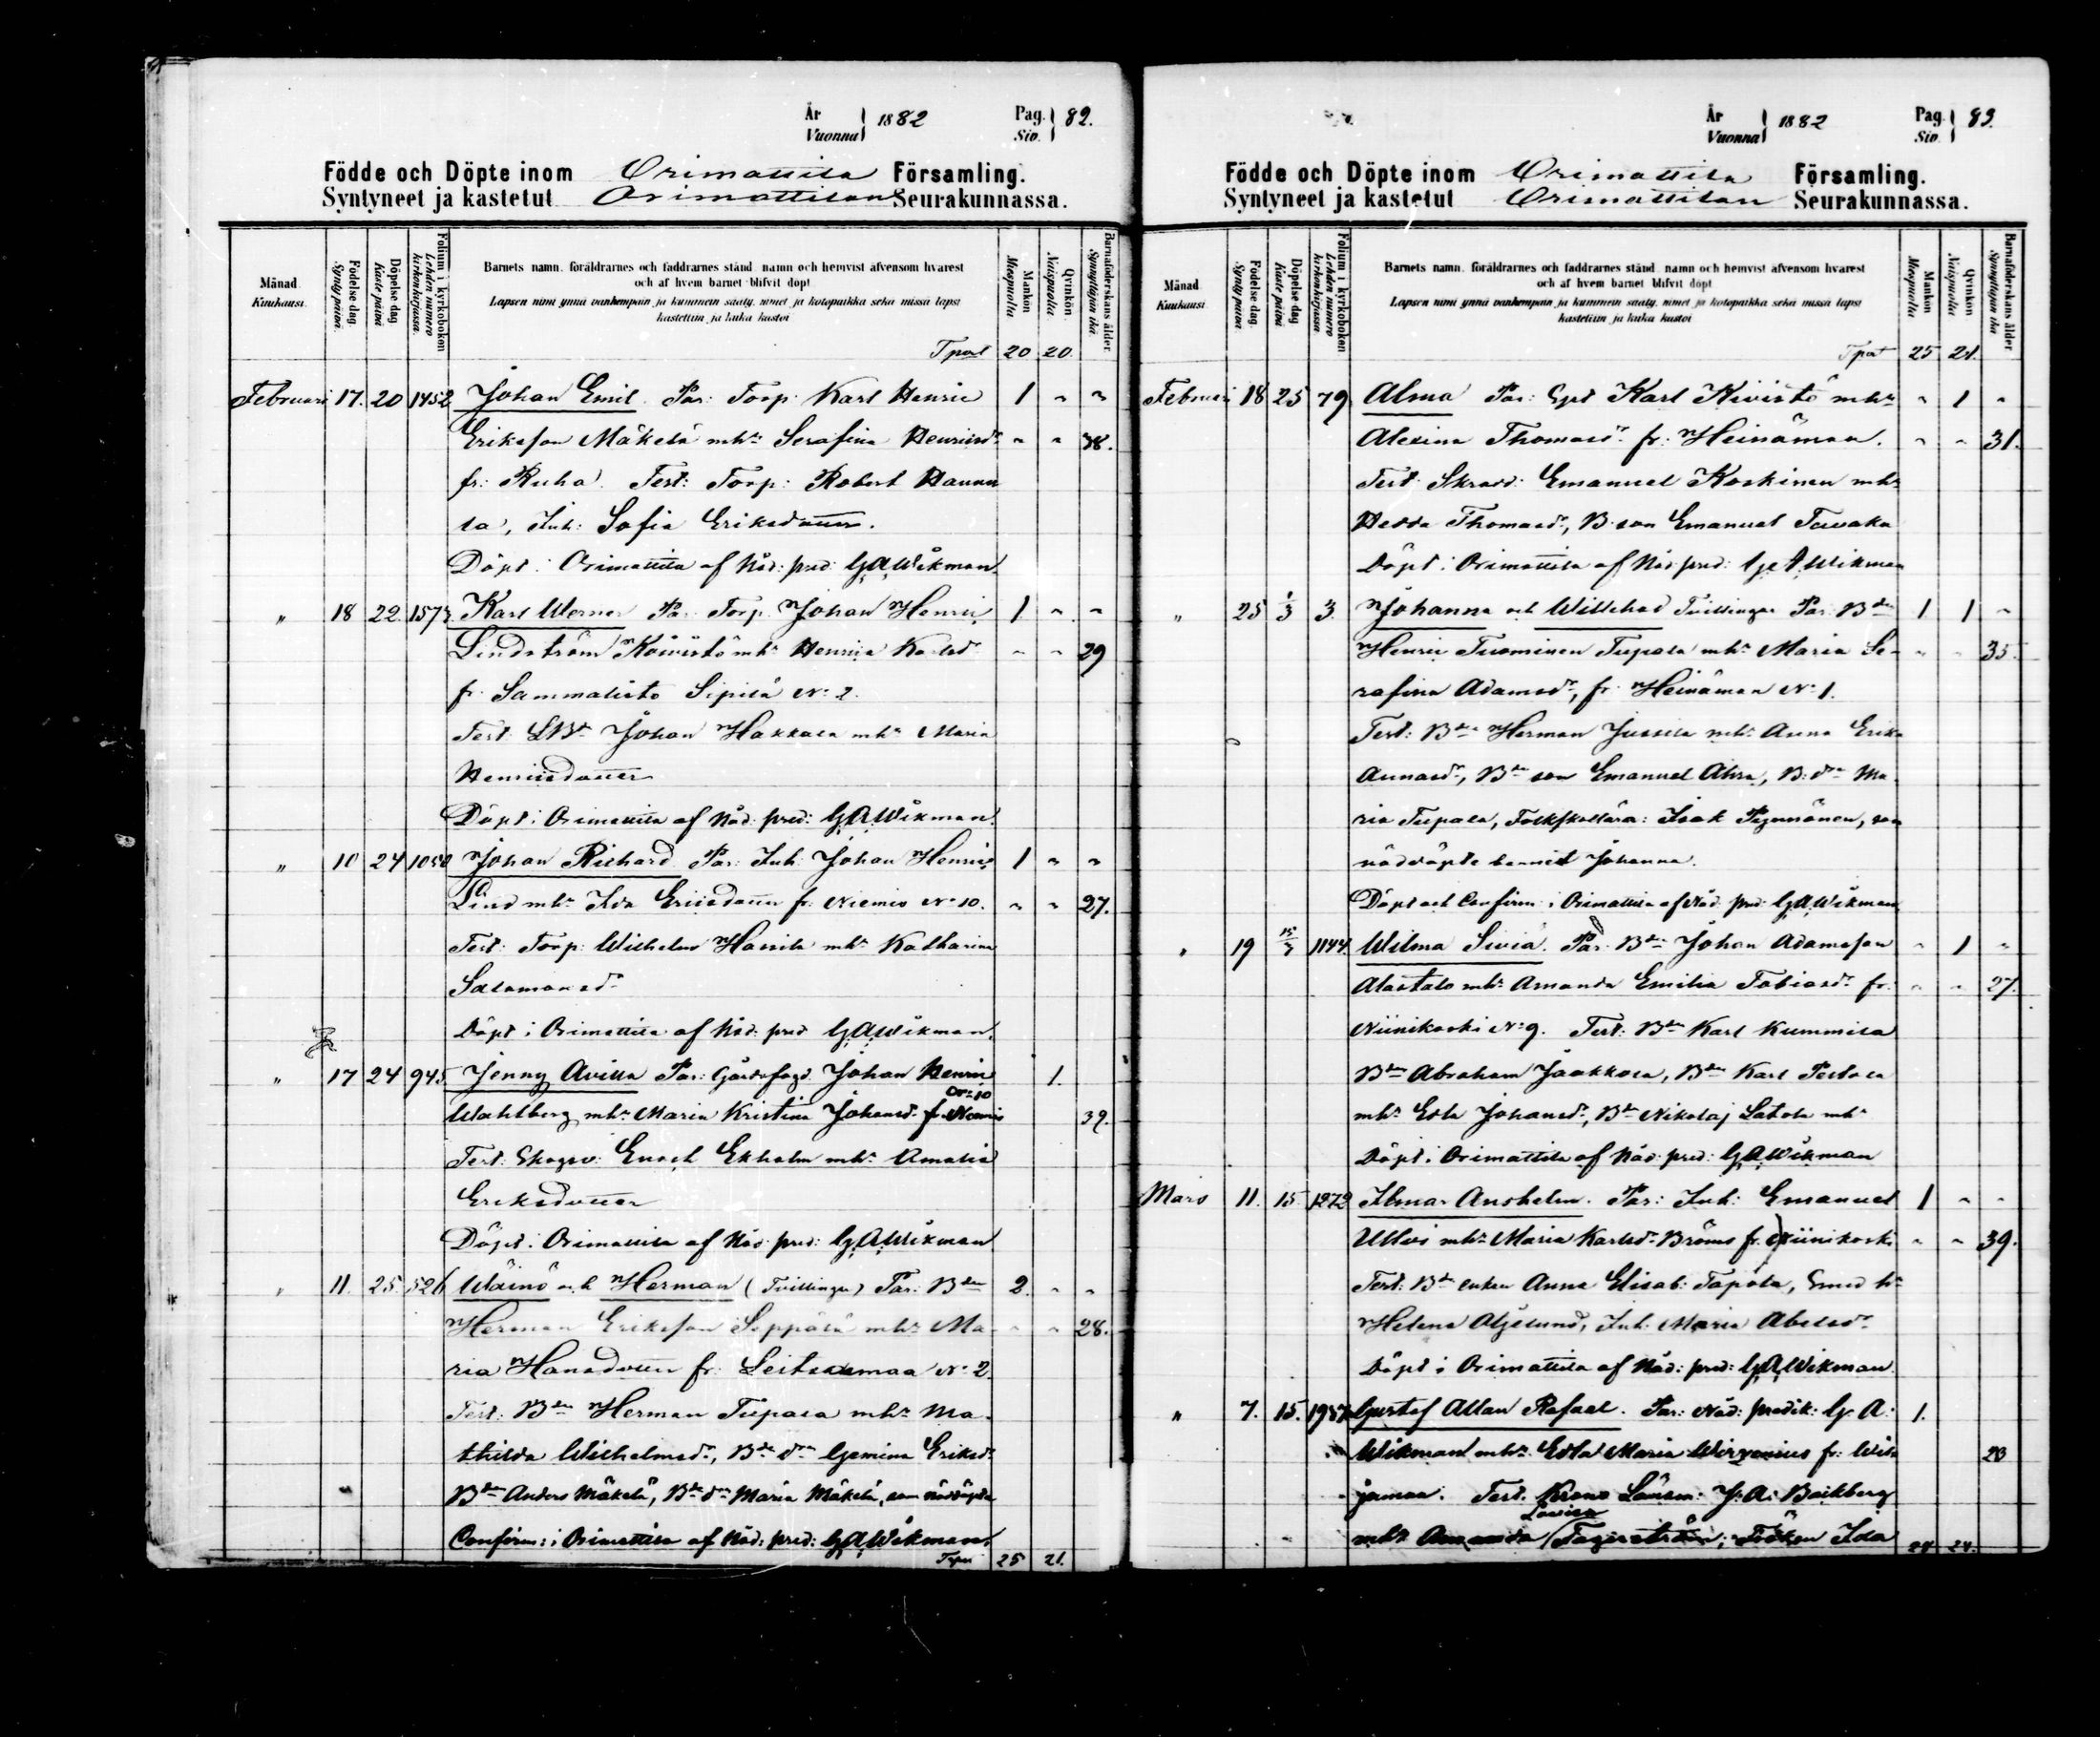 År
Vuonna } 1882 Pag.
Siv. } 82.
Födde och Döpte inom Orimattila Församling.
Syntyneet ja kastetut Orimattilan Seurakunnassa.
Månad. Kuukausi.
Födelse dag. Synty päivä.
Döpelse dag Kaste päivä
Folium i kyrkoboken Lehden numero kirkonkirjassa.
Barnets namn, föräldrarnes och faddrarnes stånd, namn och hemvist äfvensom hvarest
och af hvem barnet blifvit döpt
Lapsen nimi ynnä vanhempain ja kummein sääty, nimet ja kotopaikka sekä missä lapsi
kastettiin ja kuka kastoi
Mankön Miespuolta
Qvinkön. Naispuolta
Barnaföderskans ålder Synnyttäjän ikä.
Tport 20 20.
Februari 17. 20 1452 Johan Emil. Får: Torp: Karl Henric 1 " "
Eriksson Mäkelä mhr Serafina Henricsdr " " 38.
fr: Ruha. Test: Torp: Robert Hannu
la, Inh: Sofia Eriksdotter.
Döpt i Orimattila af Nåd: pred: G.A.Wikman.
" 18 22. 157 Karl Werner Får: Torp. Johan Henric 1 " "
Lindström Koivisto mhr Henrica Karlsd " " 29
fr. Sammalisto Sipilä No 2.
Test: Johan Hakkala mhr Maria
Henricsdotter
Döpt i Orimattila af Nåd: pred: G.A.Wikman.
" 10 24 1050 Johan Richard Får: Inh: Johan Henric 1 " "
Lind mhr Ida Ericsdotter fr. Niemis No 10. " " 27.
Test: Torp: Wilhelm Hassila mhr Katharina
Salomonsdr
Döpt i Orimattila af Nåd: pred G.A.Wikman.
" 17 24 945 Jenny Får: Gårdsfogd. Johan Henric 1.
No 10
Wahlberg mhr Maria Kristina Johansdr fr. Niemis 39.
Test: Skogsv: Enoch Ekholm mhr Amalia
Eriksdotter
Döpt i Orimattila af Nåd: pred: G.A.Wikman
" 11. 25. 526 Wäinö och Herman (Tvillingar) Får: Bdn 2. " "
Herman Eriksson Seppälä mhr Ma- " " 28.
ria Hansdotter fr. Leitsamaa No 2.
Test: Bdn Herman Tupala mhr Ma-
thilda Wilhelmsdr, Bde dr Gemina Eriksdr
Bdn Anders Mäkelä, Bde dr Maria Mäkelä, som nöddöpte
Confirm: i Orimattila af Nåd: pred: G.A.Wikman.
Tport 25 21.
År
Vuonna } 1882 Pag.
Siv. } 83.
Födde och Döpte inom Orimattila Församling.
Syntyneet ja kastetut Orimattilan Seurakunnassa.
Månad Kuukausi.
Födelse dag. Synty päivä.
Döpelse dag Kaste päivä
Folium i kyrkoboken Lehden numero kirkonkirjassa
Barnets namn, föräldrarnes och faddrarnes stånd, namn och hemvist äfvensom hvarest
och af hvem barnet blifvit döpt
Lapsen nimi ynnä vanhempain ja kummein sääty, nimet ja kotopaikka sekä missä lapsi
kastettiin ja kuka kastoi
Mankön Miespuolta
Qvinkön Naispuolta
Barnaföderskans ålder Synnyttäjän ikä
Tport 25 21.
Februari 18 25 79 Alma Får: Karl Kivistö mhr " 1 "
Alexina Thomasdr fr: Heinämaa. " " 31.
Test: Skradd: Emanuel Koskinen mhr
Hedda Thomasdr, B:son Emanuel Tawaka
Döpt i Orimattila af Nåd: pred: G.A.Wikman
" 25 1/3 3. Johanna och Willehad Tvillingar Får: Bdn 1 1 "
Henric Tuominen Tupala mhr Maria Se- " " 35.
rafina Adamsdr, fr. Heinämaa No 1.
Test: Bdn Herman Jussila mhr Anna Erika
Annasdr, Bde son Emanuel Ahra, B:dr Ma-
ria Tupala, Folkskollära: Isak Pynnönen, som
nöddöpte barnet Johanna.
Döpt och Confirm: i Orimattila af Nåd: pred: G.A.Wikman
" 19 15/3 1144. Wilma Sivia. Får: Bdn Johan Adamsson " 1 "
Alastalo mhr Amanda Emilia Tobiasdr fr: " " 27.
Niinikoski No 9. Test: Bdn Karl Kummila
Bdn Abraham Jaakkola, Bdn Karl Pertola
mhr Edla Johansdr, Bdn Nikolaj Latola mhr
Döpt i Orimattila af Nåd: pred: G.A.Wikman
Mars 11. 15 1272 Ilmar Anshelm. Får: Inh: Emanuel 1 " "
mhr Maria Karlsdr Bröms fr. Niinikoski " " 39.
Test: Bde enkan Anna Elisab: Tapola,
Helena Inh: Maria Abelsdr.
Döpt i Orimattila af Nåd: pred: G.A.Wikman.
" 7. 15. Gustaf Allan Rafael. Får: Nåd: predik: G. A: 1.
Wikman mhr Edla Maria Wirzenius fr. Wil
jamaa. Test. Krono Länsm: J. A: Backberg
Lovisa
mhr Amanda Fagerström, Fröken Ida